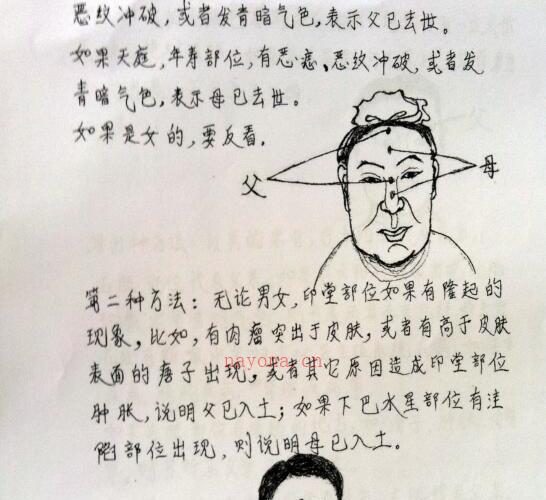 恶纹冲破，或者发青暗气色，表示父已去世。
如果天庭，年寿部位，有恶痣、恶纹冲破，或者发
青暗气色，表示母已去世。
如果是女的，要反看。
父
母
第二种方法：无论男女，印堂部位如果有隆起的
现象，比如，有肉瘤突出于皮肤，或者有高于皮肤
表面的痦子出现，或者其它原因造成印堂部位
肿胀，说明父已入土；如果下巴水星部位有洼
陷部位出现，则说明母已入土。
nayona.cn